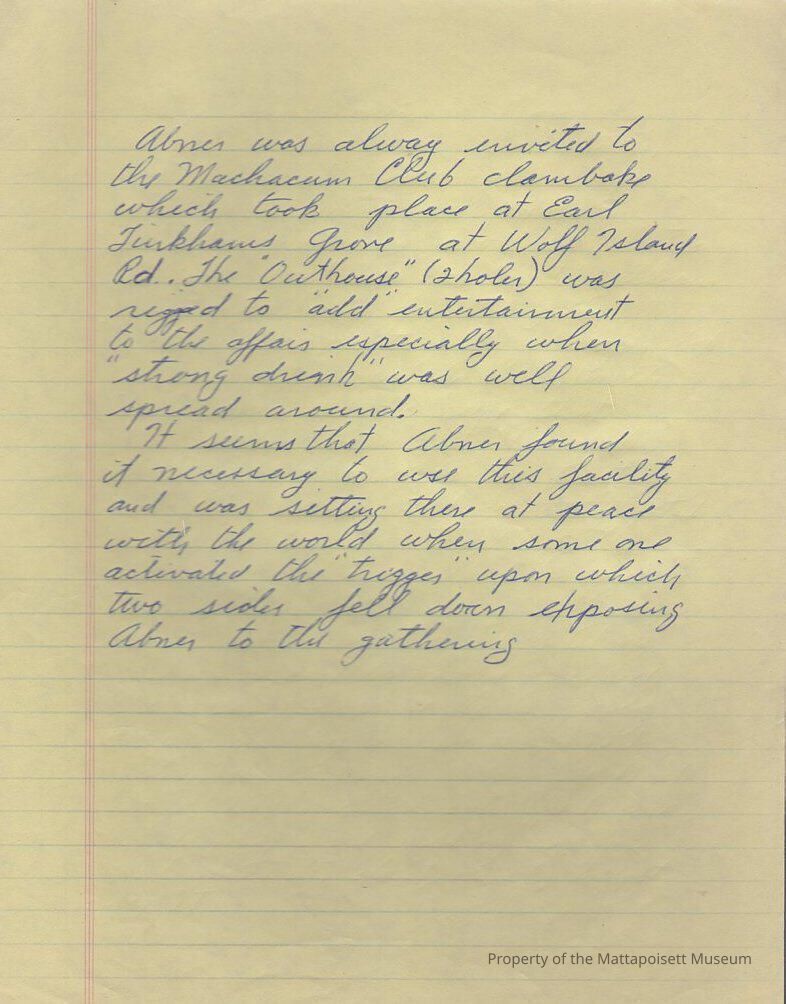 Abner was alway invited to
the Machacum Club clambake
which took place at Earl
Tinkhams Grove at Wolf Island
Rd.. The "Outhouse" (2 holer) was
rigged to "add" entertainment
to the affair especially when
"strong drink" was well
spread around.
It seems that Abner found
it necessary to use this facility
and was setting there at peace
with the world when some one
activated the "trigger" upon which
two sides fell down exposing
Abner to the gathering
Property of the Mattapoisett Museum